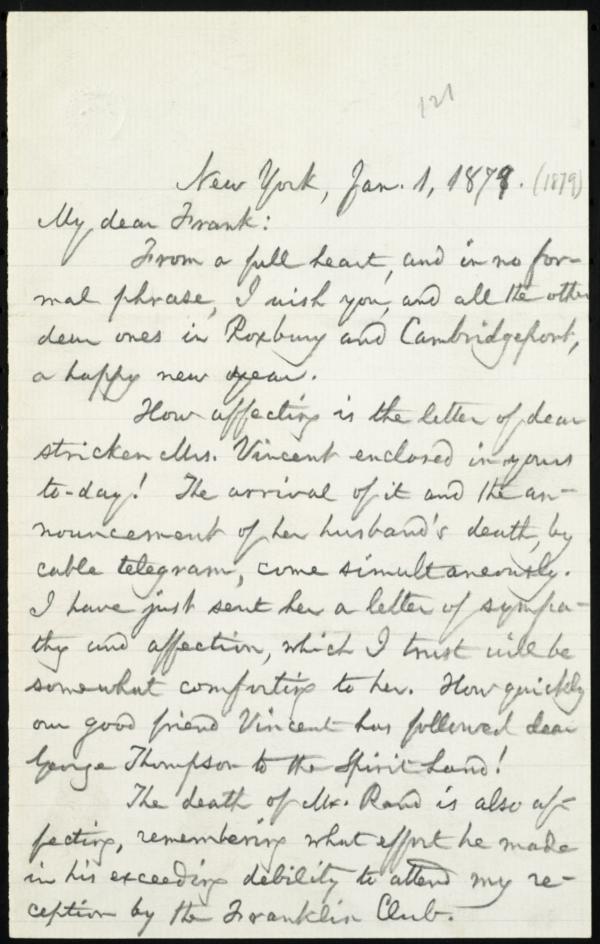 121
New York, Jan. 1, 1879. (1879)
My dear Frank:
From a full heart, and in no for-
mal phrase, I wish you, and all the other
dear ones in Roxbury and Cambridgeport,
a happy new year.
How affecting is the letter of dear
stricken Mrs. Vincent enclosed in yours
to-day! The arrival of it and the an-
nouncement of her husband's death, by
cable telegram, come simultaneously.
I have just sent her a letter of sympa-
thy and affection, which I trust will be
somewhat comforting to her. How quickly
our good friend Vincent has followed dear
George Thompson to the Spirit Land!
The death of Mr. Rand is also af-
fecting, remembering what effort he made
in his exceeding debility to attend my re-
ception by the Franklin Club.